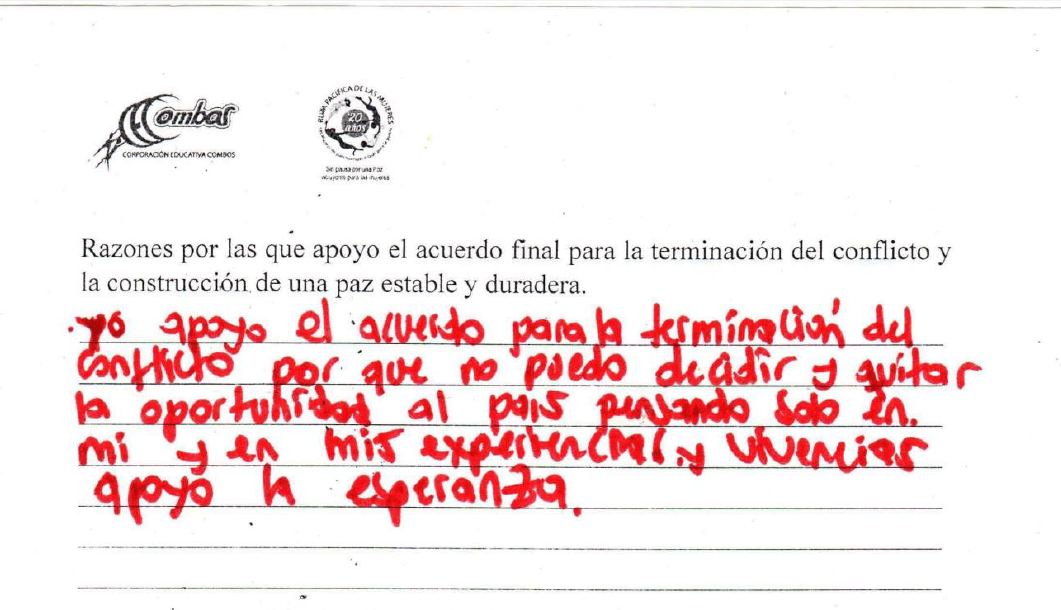 Combos
CORPORACIÓN EDUCATIVA COMBOS
RUTA PACÍFICA DE LAS MUJERES
20
años
Razones por las que apoyo el acuerdo final para la terminación del conflicto y
la construcción de una paz estable y duradera.
.yo apoyo el acuerdo para la terminación del
conflicto por que no puedo decidir y quitar
la oportunidad al pais pensando solo en.
mi y en mis experiencias y vivencias
apoyo la esperanza.